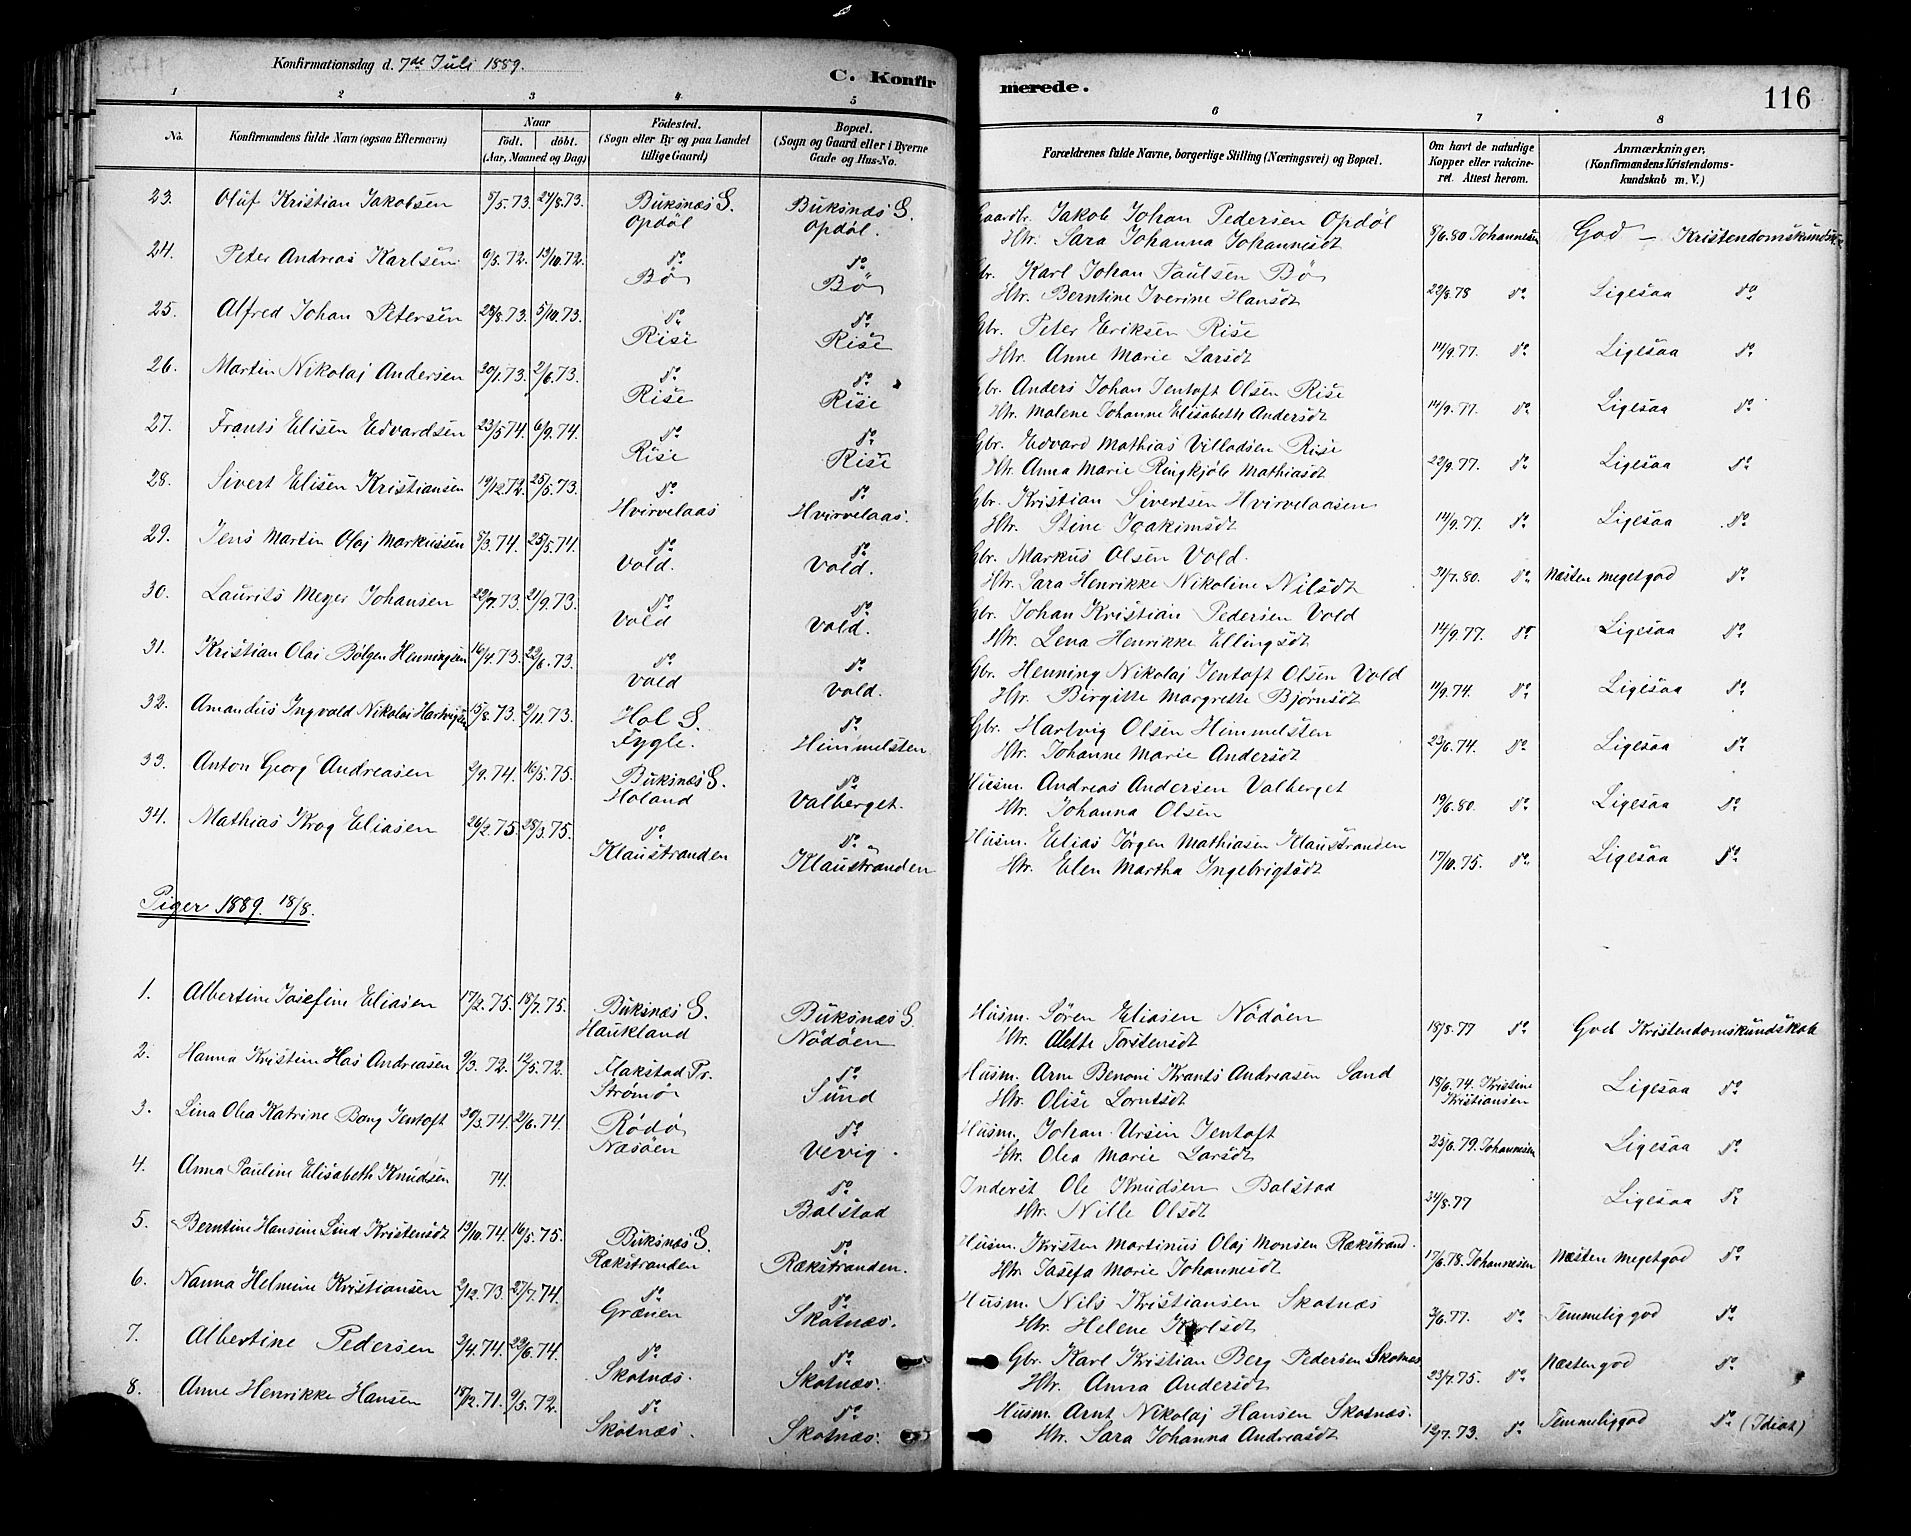 Konfirmationsdag d. 7de Juli 1889.
C. Konfirmerede.
116
1 2 3 4 5 6 7 8
No. Konfirmandens fulde Navn (ogsaa Efternavn) Naar født. døbt. (Aar, Maaned og Dag) Födested. (Sogn eller By og paa Landet tillige Gaard) Bopæl. (Sogn og Gaard eller i Byerne Gade og Hus-No. Forældrenes fulde Navne, borgerlige Stilling (Næringsvei) og Bopæl. Om havt de naturlige Kopper eller vakcineret. Attest herom. Anmærkninger, (Konfirmandens Kristendomskundskab m. V.)
23. Oluf Kristian Jakobsen 8/5.73. 24/8.73. Buksnæs S. Opdøl Buksnæs S. Opdøl. Gaardbr. Jakob Johan Pedersen Opdøl
Htr. Sara Johanna Johannesdt 8/6.80 Johannesen God – Kristendomskundsk.
24. Peter Andreas Karlsen 6/8.72. 13/10.72. do Bø do Bø Gbr. Karl Johan Paulsen Bø
Htr. Berntine Iverine Hansdt 22/8.78 do Ligesaa do
25. Alfred Johan Petersen 23/8.73. 5/10.73. do Rise do Rise Gbr. Peter Eriksen Rise
Htr. Anne Marie Larsdt 14/9.77. do Ligesaa do
26. Martin Nikolaj Andersen 30/1.73. 2/6.73. do Rise do Rise Gbr. Anders Johan Jentoft Olsen Rise
Htr. Malene Johanne Elisabeth Andersdt 14/9.77. do Ligesaa do
27. Frants Elisen Edvardsen 23/5 74. 6/9.74. do Rise do Rise Gbr. Edvard Mathias Villadsen Rise
Htr. Anna Marie Ringkjøb Mathiasdt 22/9.77. do Ligesaa do
28. Sivert Elisen Kristiansen 19/12.72. 25/5.73. do Hvirvelaas do Hvirvelaas. Gbr. Kristian Sivertsen Hvirvelaasen
Htr. Stine Joakimsdt 14/9.77. do Ligesaa do
29. Jens Martin Olaj Markussen 8/3.74. 25/5.74. do Vold. do Vold. Gbr. Markus Olsen Vold.
Htr. Sara Henrikke Nikoline Nilsdt 31/7.80. do Næsten meget god do
30. Laurits Meyer Johansen 22/7.73. 21/9.73. do Vold do Vold. Gbr. Johan Kristian Pedersen Vold
Htr. Lena Henrikke Ellingsdt 14/9.77. do Ligesaa do
31. Kristian Olai Bølgen Henningsen 16/4.73. 22/6.73. do Vold do Vold. Gbr. Henning Nikolaj Jentoft Olsen Vold
Htr. Birgitte Margrethe Bjørnsdt 11/9.74. do Ligesaa do
32. Amandus Ingvald Nikolai Hartvigsen 15/8.73. 2/11.73. Hol S. Fygle. do Himmelsten. Gbr. Hartvig Olsen Himmelsten
Htr. Johanne Marie Andersdt 23/6.74. do Ligesaa do
33. Anton Georg Andreasen 2/9.74. 16/5.75. Buksnæs S. Holand do Valberget. Husm. Andreas Andersen Valberget
Htr. Johanna Olsen 19/6.80. do Ligesaa do
34. Mathias Krog Eliasen 26/2.75. 28/3.75. do Klaustranden do Klaustranden Husm. Elias Jørgen Mathiasen Klaustranden
Htr. Elen Martha Ingebrigtsdt 17/10.75. do Ligesaa do
Piger 1889. 18/8.
1. Albertine Josefine Eliasen 17/2.75. 18/7.75. Buksnæs S. Haukland Buksnæs S. Nödöen Husm. Søren Eliasen Nödöen
Htr. Alette Torstensdt 18/8.77 do God Kristendomskundskab
2. Hanna Kristine Has Andreasen 9/3.72. 12/5.72. Flakstad Pr. Strömör do Sund Husm. Arn Benoni Krants Andreasen Sand
Htr. Olise Lorntsdt 18/6.74. Kristine Kristiansen Ligesaa do
3. Lina Olea Katrine Bang Jentoft 30/3.74. 21/6.74. Rödö Næsöen do Vevig. Husm. Johan Ursin Jentoft
Htr. Olea Marie Larsdt 25/6.79. Johannesen Ligesaa do
4. Anna Pauline Elisabeth Knudsen 74. do Balstad Inderst Ole Knudsen Balstad
Htr. Nille Olsdt 31/8.77 Ligesaa do
5. Berntine Hansine Lind Kristensdt 13/10.74. 16/5.75. Buksnæs S. Rækstranden do Rækstranden. Husm. Kristen Martinus Olaj Monsen Rækstrand.
Htr. Josefa Marie Johannesdt 17/6.78. Johannesen Næsten meget god do
6. Nanna Helmine Kristiansen 2/12.73. 27/7.74. do Grænen do Skotnæs. Husm. Nils Kristiansen Skotnæs
Htr. Helene Karlsdt 2/6.77. do Temmelig god do
7. Albertine Pedersen 2/4.74. 22/6.74. do Skotnæs. do Skotnæs. Gbr. Karl Kristian Berg Pedersen Skotnæs
Htr. Anna Andersdt 23/7.75. do Næsten god do
8. Anne Henrikke Hansen 18/12.71. 9/5.72. do Skotnæs. do Skotnæs. Husm. Arnt Nikolaj Hansen Skotnæs.
Htr. Sara Johanna Andreasdt 12/7.73. do Temmelig god do (Idiot)